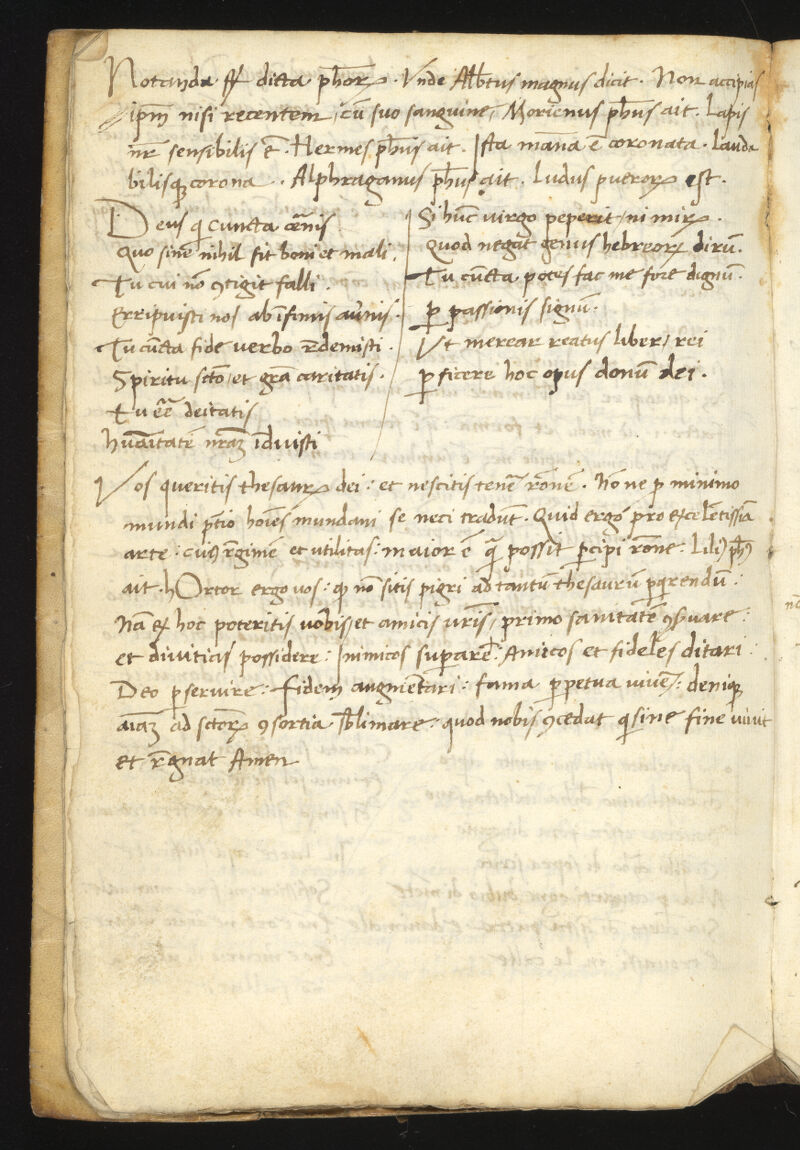 Notanda st̃ dicta ph̃orꝝ. Vnde Alb̃tus magnus dicit. Non accipias
ip̃m nisi recentem, cũ suo sanguine, Morienus ph̃us ait. Lapis
nr̃ sensibilis ẽ. Hermes ph̃us ait. Ista mãna ẽ coronata. Lauda
bilisqꝫ corona. Alphraganus ph̃us ait. Ludus puerorꝝ est.
Deus q cuncta cẽnis
Quo sine nihil fit boni et mali.
Tu cui nõ ꝯtigit falli.
Erripuisti nos ab ĩfimis aũnis.
Tu cũcta fide verbo rẽdemisti.
Spiritu sctõ, et grã caritatis.
Tu eẽ deitatis
huãitatẽ nr̃aꝫ ĩdvisti
Si hũc virgo peperit, ni mirꝝ.
Quod negat genus hebreorꝝ dirũ.
Tu cũcta potes fac me fore dignũ.
ꝑ passionis signũ.
Vt merear reatus liber, rei
ꝑficere hoc opus donũ dei.
Vos queritis thesaurꝝ dei: et nescitis tenẽ rõnẽ. Nõ ne ꝑ minimo
mundi p̃tio hoĩes mundani se neci tradũt. Quid ergo pro excelẽtissĩa
arte: cuiꝰ rẽgimẽ et utilitas: maior ẽ q̃ possit ꝑcipi rõne: Liliꝰ ph̃ꝰ
ait. hOrtor ergo vos: qꝫ nõ sitis pigri ad tantũ thesaurũ ꝑqrendũ:
Nã ex hoc poteritis vobis, et amicis vr̃is, primo sanitatẽ ꝯs̃uare:
et divitias possidere: Inimicos superarẽ: Amicos et fideles ditari:
Deo ꝑservire: fidem augmẽtari: fama ꝑpetua viuẽ: deniqꝫ
aĩaꝫ ad sctorꝝ ꝯsortia s̃blimare: quod nobis ꝯcedat q sine fine viuit
et rẽgnat Amen